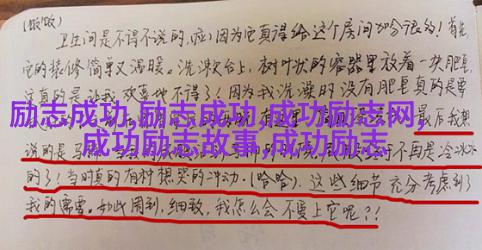 (嗷嗷)
卫生间是不得不说的，啦，因为它真得给这个房间加分很多！首先，
它的装修简单又温暖。洗漱台上，树叶状的容器里放着一块肥皂，
这真的是让我欢喜地不得了！因为我洗澡时没有用肥皂真的是要
励志成功,励志成功,成功励志网,
最后我想
成功励志故事,成功励志
说的是马
不再是冷冰冰
的了！当时真的有种想哭的冲动，(哈哈)，这些细节充分考虑到了
我的需要。如此周到，细致，我怎么会不爱上它呢？！